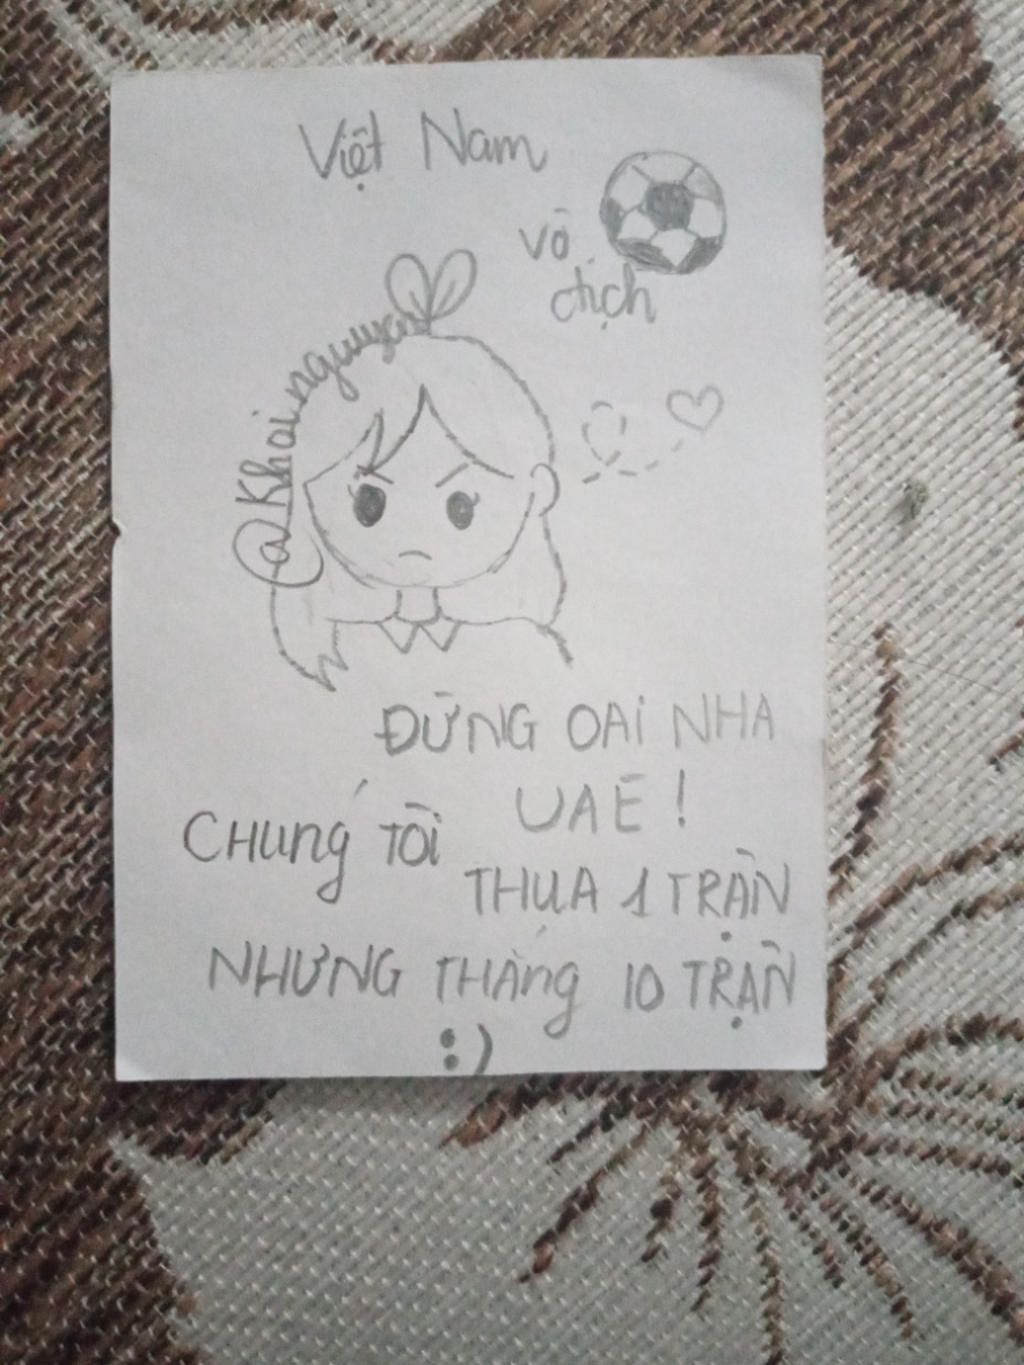 Việt Nam
vô
địch
@Khainguyen
ĐỪNG OAi NHA
UAE !
CHúng TÔi
THUA 1 TRẬN
NHƯNG THắng 10 TRẬN
:)